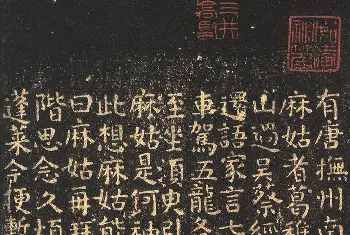 三井高堅
有唐撫州南
麻姑者葛稚
山過吳蔡經
還語家言七
車駕五龍各
至坐須臾引
麻姑是何神
此想麻姑能
曰麻姑再拜
階思念久煩
蓬萊今便暫